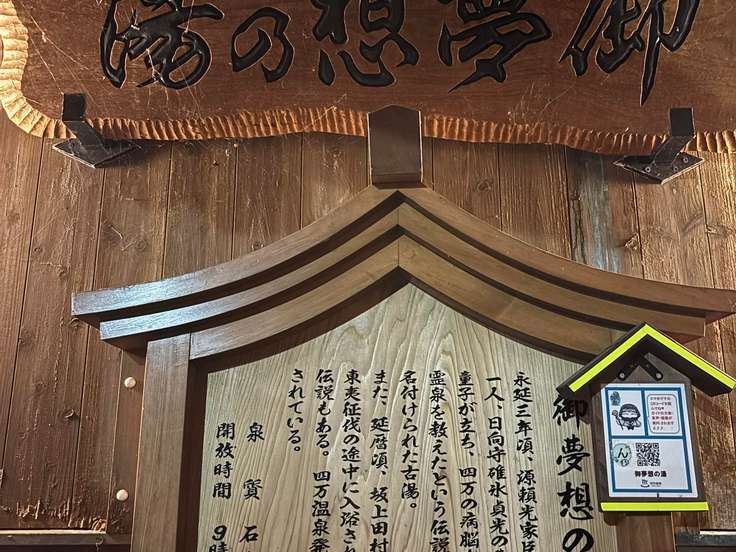 御夢想の湯
御夢想の
永延三年頃、源頼光家臣
一人、日向守碓氷貞光の
童子が立ち、四万の病脳
霊泉を教えたという伝説
名付けられた古湯。
また、延暦頃、坂上田村
東夷征伐の途中に入浴さ
伝説もある。四万温泉発
されている。
泉質 石
開放時間 9時
御夢想の湯